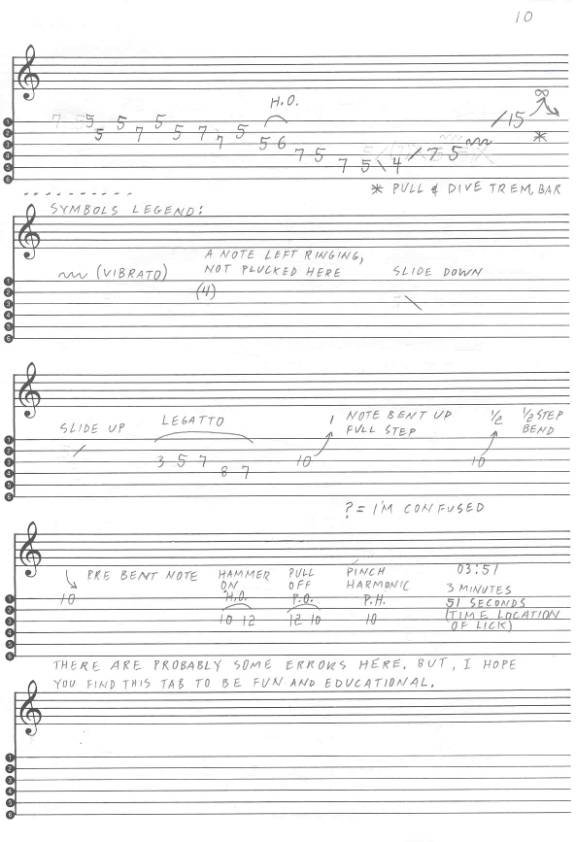 10
H.O.
7 5 5 5 5 7 5 5 7 7 5 5 6 7 5 7 5 \ 4 / 7 5 / 15
* PULL & DIVE TREM. BAR
SYMBOLS LEGEND:
(VIBRATO)
A NOTE LEFT RINGING,
NOT PLUCKED HERE
(4)
SLIDE DOWN
SLIDE UP
LEGATTO
3 5 7 8 7
1 NOTE BENT UP
FULL STEP
10
1/2 1/2 STEP
BEND
10
? = I'M CONFUSED
PRE BENT NOTE
10
HAMMER
ON
H.O.
10 12
PULL
OFF
P.O.
12 10
PINCH
HARMONIC
P.H.
10
03:51
3 MINUTES
51 SECONDS
(TIME LOCATION
OF LICK)
THERE ARE PROBABLY SOME ERRORS HERE. BUT, I HOPE
YOU FIND THIS TAB TO BE FUN AND EDUCATIONAL.